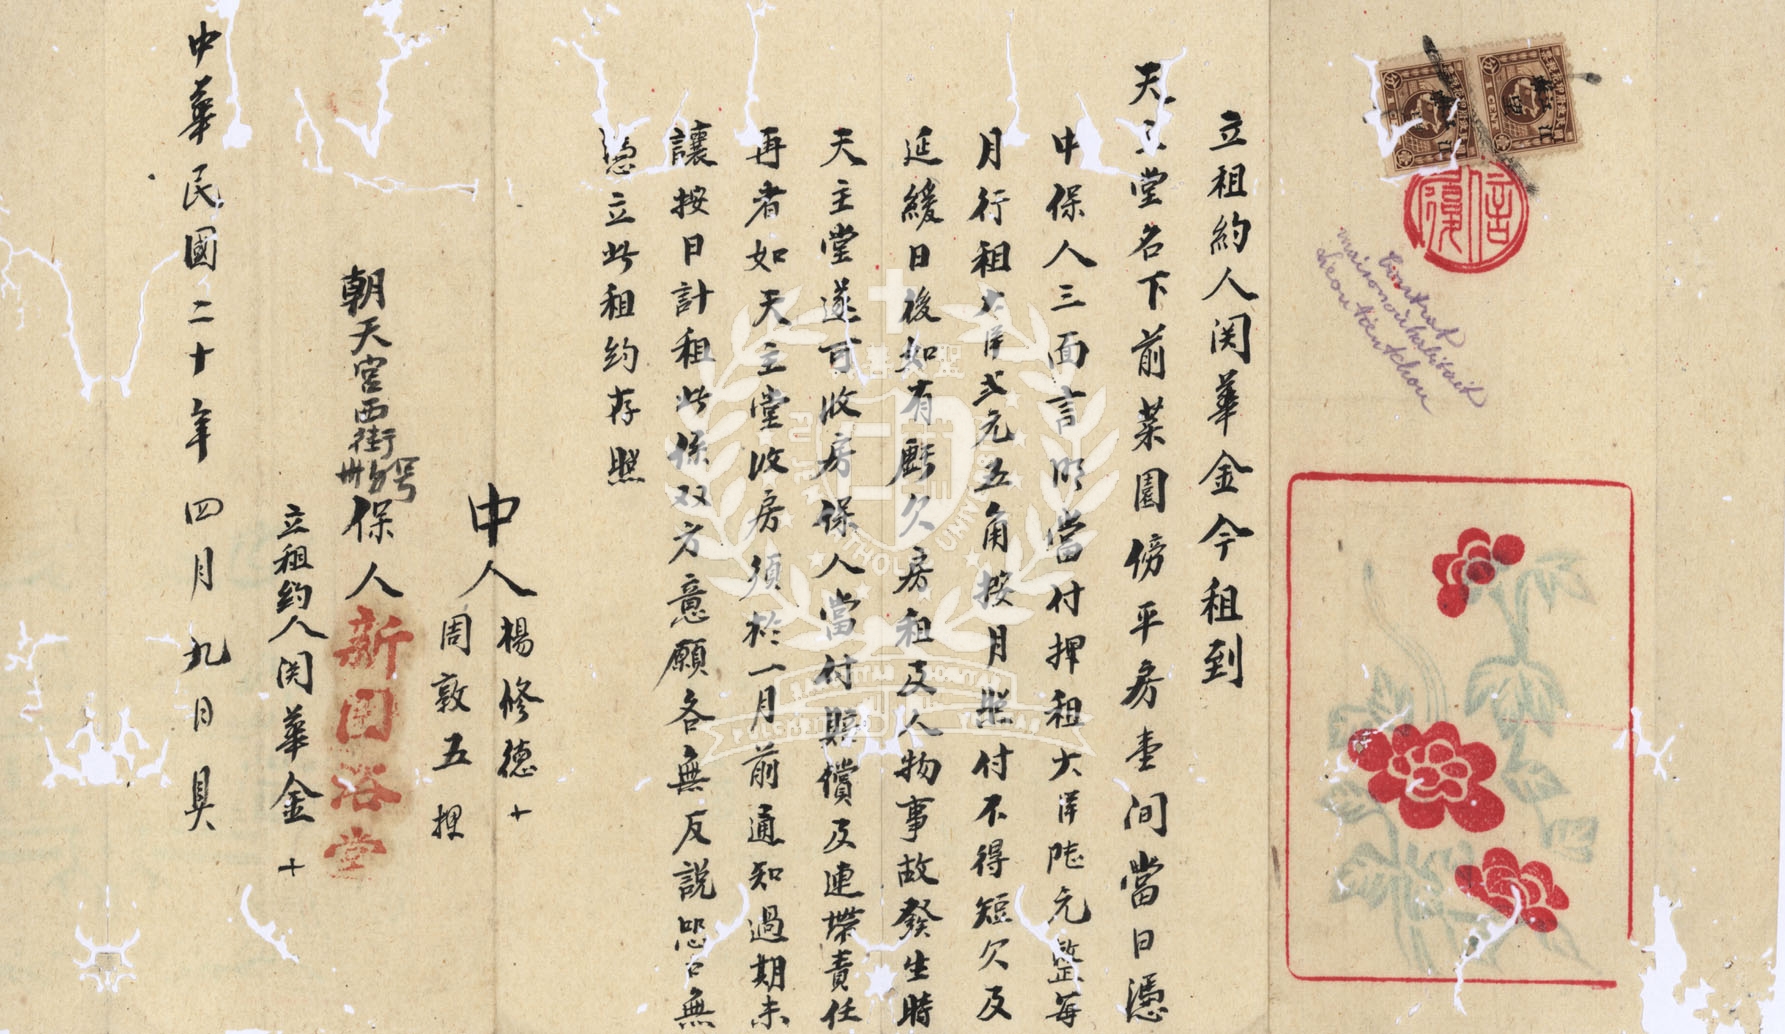 立租約人関華金今租到
天主堂名下前菜園傍平房壹间當日憑
中保人三面言明當付押租大洋陸元整每
月行租大洋弍元五角按月照付不得短欠及
延緩日後如有虧欠房租及人物事故發生時
天主堂遂可收房保人當付賠償及連帶責任
再者如天主堂收房須於一月前通知過期未
讓按日計租此係双方意願各無反說恐口無
憑立此租約存照
中人 楊修德 十
周敦五 押
朝天宮西街卅号 保人 新園浴堂
立租約人関華金 十
中華民國二十年四月九日具
信
Contrat